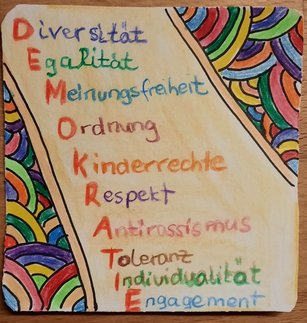 Diversität
Egalität
Meinungsfreiheit
Ordnung
Kinderrechte
Respekt
Antirassismus
Toleranz
Individualität
Engagement